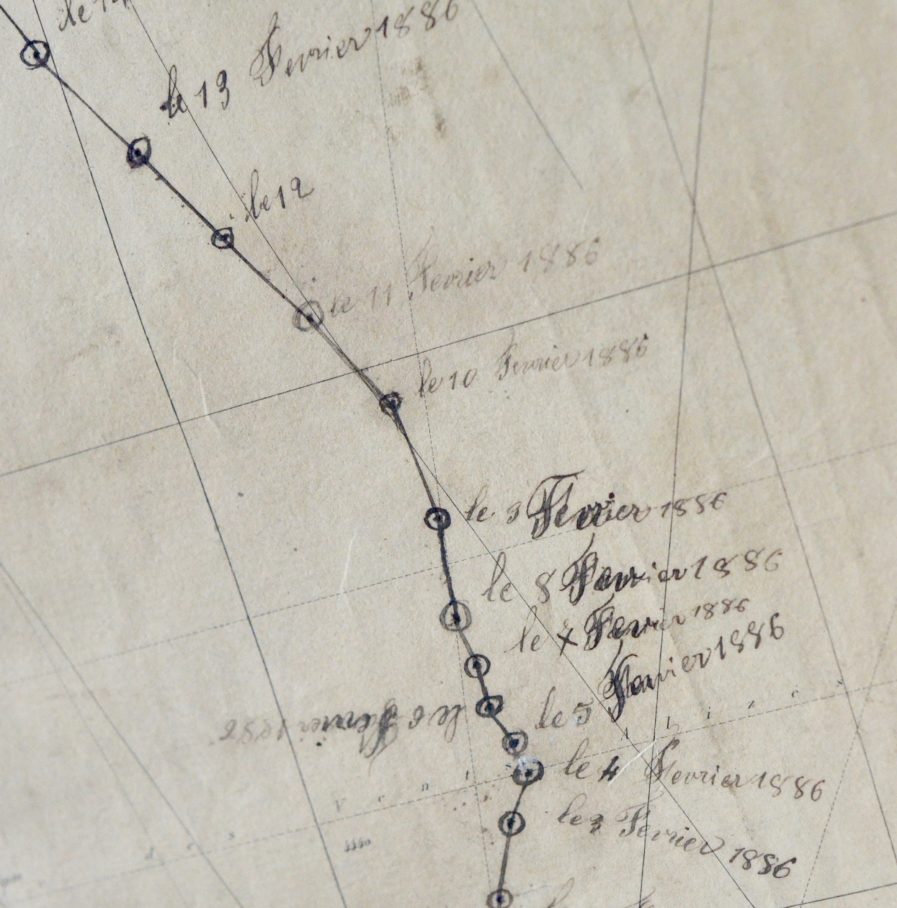 le 14
le 13 Fevrier 1886
le 12
le 11 Fevrier 1886
le 10 Fevrier 1886
le 9 Fevrier 1886
le 8 Fevrier 1886
le 7 Fevrier 1886
le 6 Fevrier 1886
le 5 Fevrier 1886
le 4 Fevrier 1886
le 3 Fevrier 1886